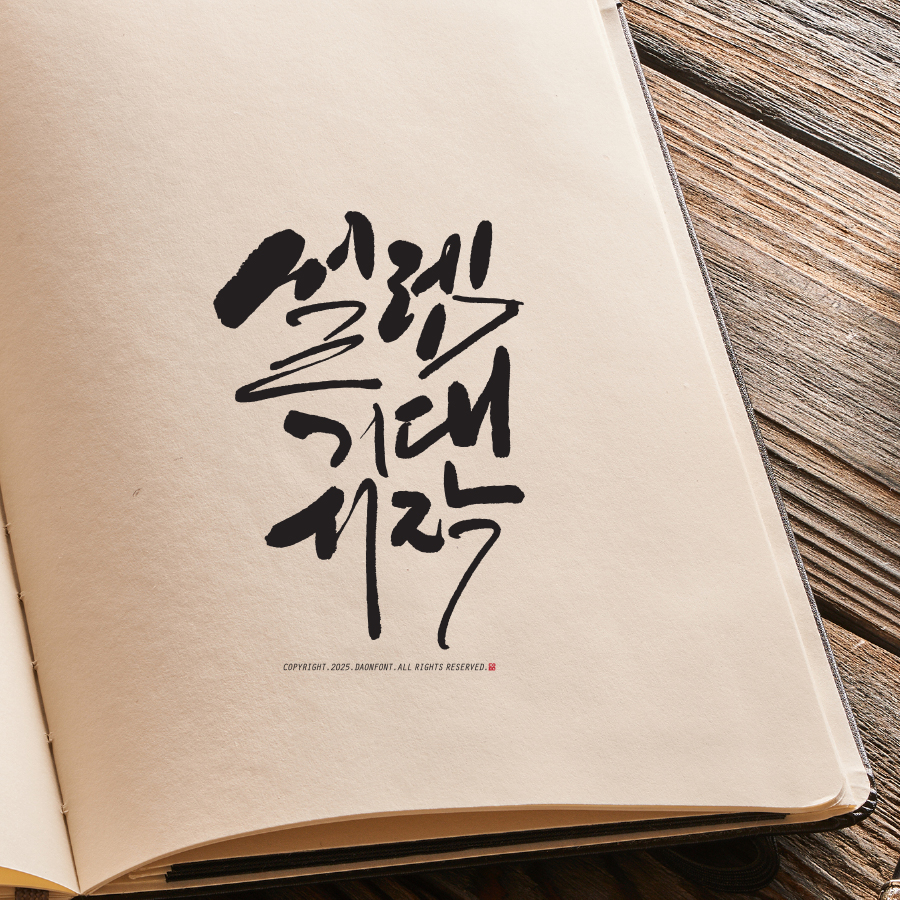 설렘
기대
시작
COPYRIGHT.2025.DAONFONT.ALL RIGHTS RESERVED.